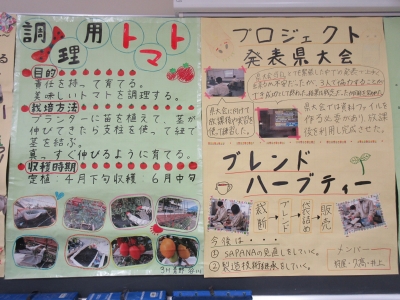 調理用トマト
目的
責任を持って育てる。
美味しいトマトを調理する。
栽培方法
プランターに苗を植えて、茎が
伸びてきたら支柱を使って紐で
茎を結ぶ。
真っすぐ伸びるように育てる。
収穫時期
定植：4月下旬 収穫：6月中旬
プロジェクト
発表県大会
県大会に向けて
放課後や実習
を使て練習した。
県大会では資料ファイルを
作る必要があり放課
後を利用し完成させた。
ブレンド
ハーブティー
裁断
ブレンド
袋詰め
販売
今後は・・・・
①SAPANAの見直しをしていく。
②製造技術継承をしていく。
メンバー